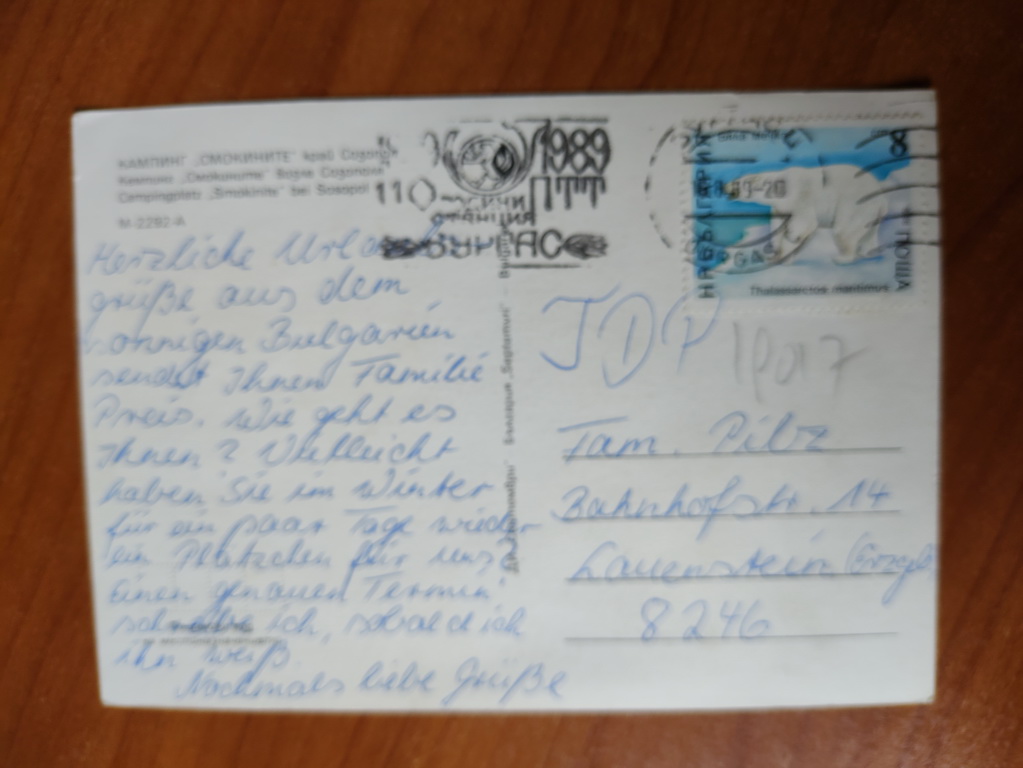 КАМПИНГ „СМОКИНИТЕ" край Созопол
Кемпинг „Смокините" возле Созополя
Campingplatz „Smokinite" bei Sosopol
М-2292-А
1989
110
ПТТ
СТАНЦИЯ
БУРГАС
НР БЪЛГАРИЯ
8
ПОЩА
Thalassarctos maritimus
Herzliche Urlaubs
grüße aus dem
sonnigen Bulgarien
sendet Ihnen Familie
Preis. Wie geht es
Ihnen? Vielleicht
haben Sie im Winter
für ein paar Tage wieder
ein Plätzchen für uns?
Einen genauen Termin
schreibe ich, sobald ich
ihn weiß.
Nochmals liebe Grüße
България „Септември"
Fam. Pilz
Bahnhofstr. 14
Lauenstein (Erzgeb
8246